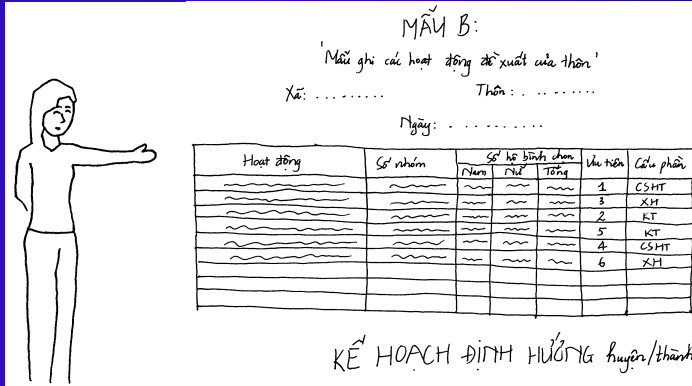 MẪU B:
'Mẫu ghi các hoạt động đề xuất của thôn'
Xã: ......... Thôn: .........
Ngày: ..........
Hoạt động Số nhóm Số hộ bình chọn Ưu tiên Cấu phần
Nam Nữ Tổng
1 CSHT
3 XH
2 KT
5 KT
4 CSHT
6 XH
KẾ HOẠCH ĐỊNH HƯỚNG huyện/thành